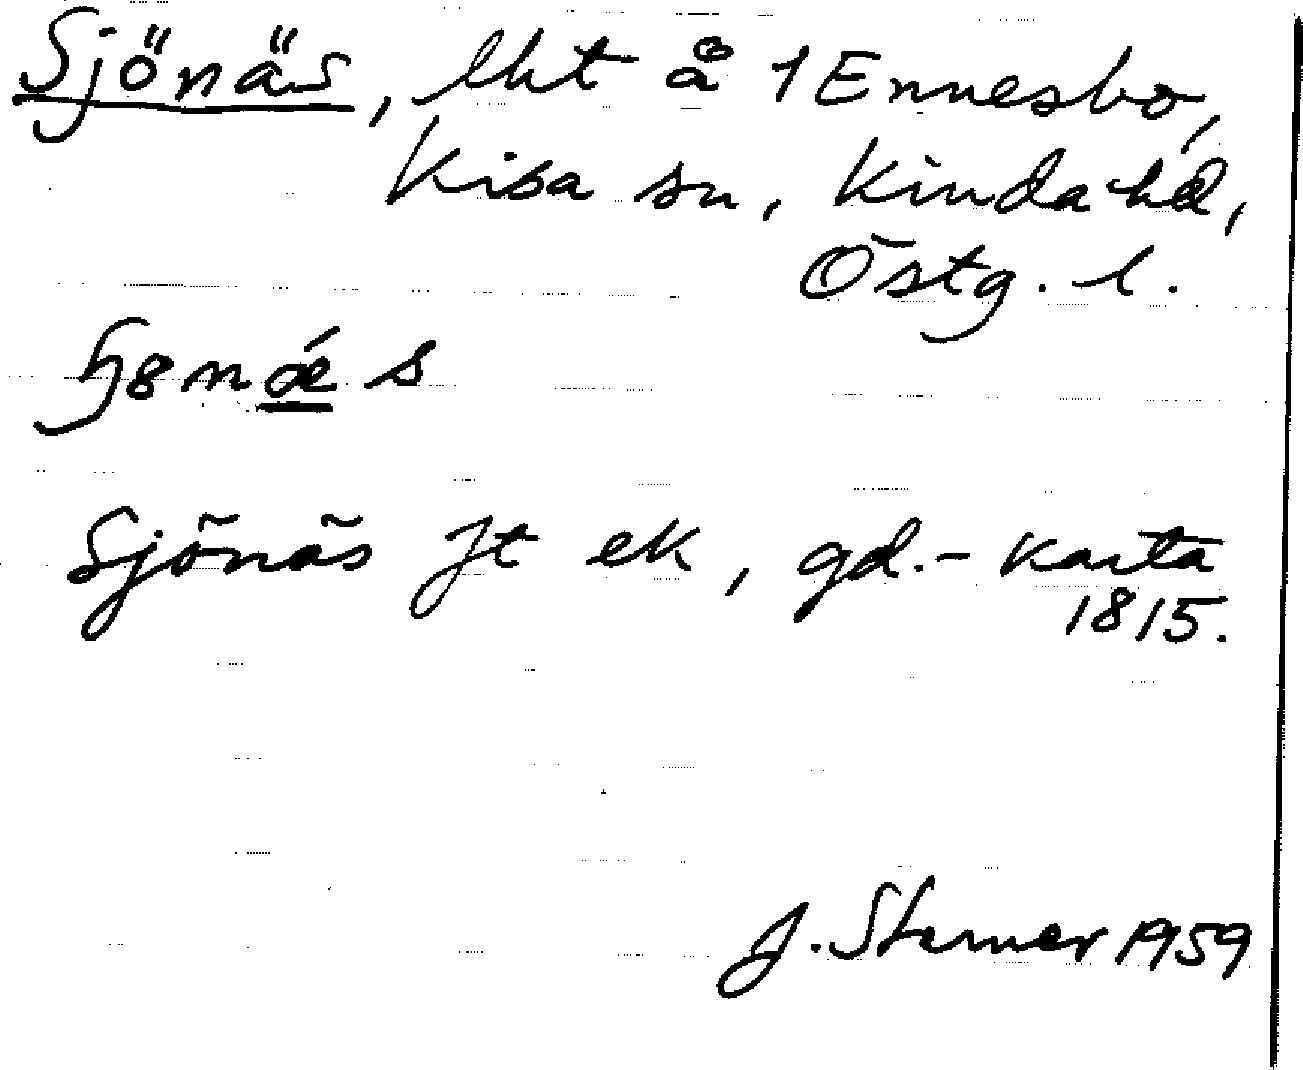 Sjönäs, lht å 1 Ennesbo,
Kisa sn, Kinda hd,
Östg. l.
Sjönäs Jt ek, gd.- karta
1815.
J. Sterner 1959